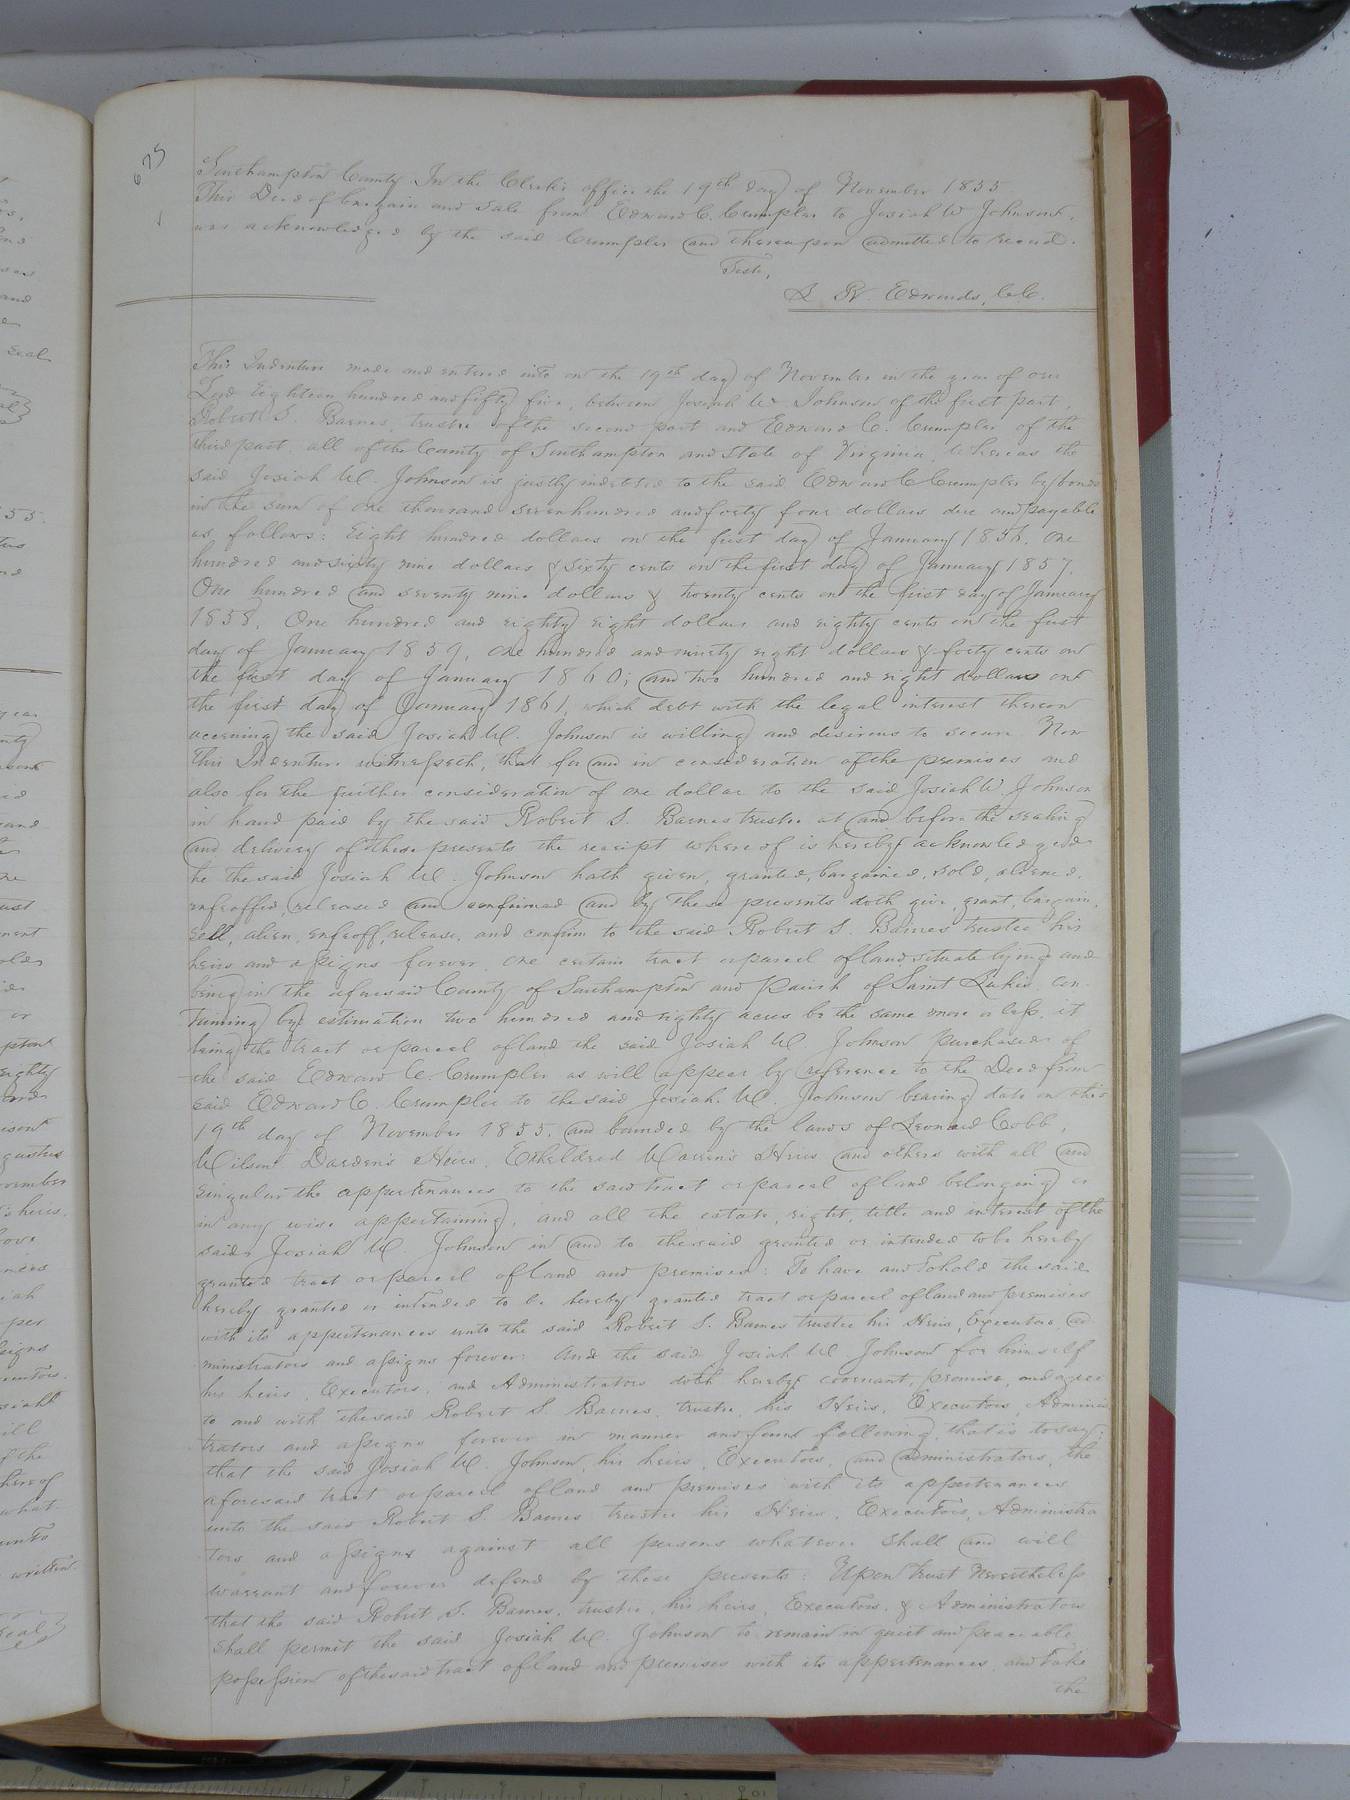 675
Southampton County In the Clerk's office the 19th day of November 1855
This Deed of bargain and sale from Edward C. Crumpler to Josiah W Johnson,
was acknowledged by the said Crumpler and thereupon admitted to record.
Teste,
L R. Edwards, C.C.
This Indenture made and entered into on the 19th day of November in the year of our
Lord Eighteen hundred and fifty five, between Josiah W. Johnson of the first part,
Robert S. Barnes, trustee of the second part and Edward C. Crumpler of the
third part all of the County of Southampton and State of Virginia, Whereas the
said Josiah W. Johnson is justly indebted to the said Edward C Crumpler by bonds
in the sum of one thousand seven hundred and forty four dollars due and payable
as follows: Eight hundred dollars on the first day of January 1856. One
hundred and sixty nine dollars & sixty cents on the first day of January 1857.
One hundred and seventy nine dollars & twenty cents on the first day of January
1858, One hundred and eighty eight dollars and eighty cents on the first
day of January 1859, one hundred and ninety eight dollars & forty cents on
the first day of January 1860; and two hundred and eight dollars on
the first day of January 1861, which debt with the legal interest thereon
accruing the said Josiah W. Johnson is willing and desirous to secure. Now
this Indenture witnesseth, that for and in consideration of the premises and
also for the further consideration of one dollar to the said Josiah W Johnson
in hand paid by the said Robert S. Barnes trustee at and before the sealing
and delivery of these presents the receipt whereof is hereby acknowledged
he the said Josiah W. Johnson hath given, granted, bargained, sold, aliened,
enfeoffed, released and confirmed and by these presents doth give, grant, bargain,
sell, alien, enfeoff, release, and confirm to the said Robert S. Barnes trustee his
heirs and assigns forever, one certain tract or parcel of land situate lying and
being in the aforesaid County of Southampton and Parish of Saint Lukes, con-
taining by estimation two hundred and eighty acres be the same more or less, it
being the tract or parcel of land the said Josiah W Johnson purchased of
the said Edward C. Crumpler as will appear by reference to the Deed from
said Edward C. Crumpler to the said Josiah W. Johnson bearing date on this
19th day of November 1855, and bounded by the lands of Leonard Cobb,
Wilson Darden's Heirs, Etheldred Warren's Heirs and others with all and
singular the appertenances to the said tract or parcel of land belonging or
in any wise appertaining, and all the estate, right, title and interest of the
said Josiah W Johnson in and to the said granted or intended to be hereby
granted tract or parcel of land and premises: To have and to hold the said
hereby granted or intended to be hereby granted tract or parcel of land and premises
with its appertenances unto the said Robert S. Barnes trustee his Heirs, Executors, ad-
ministrators and assigns forever: And the said Josiah W Johnson for himself
his heirs, Executors, and Administrators doth hereby covenant, promise, and agree
to and with the said Robert S Barnes, trustee, his Heirs, Executors, Adminis
trators and assigns forever in manner and form following, that is to say:
that the said Josiah W. Johnson, his heirs, Executors, and administrators, the
aforesaid tract or parcel of land and premises with its appertenances
unto the said Robert S. Barnes trustee his Heirs, Executors, Administra
tors and assigns against all persons whatever shall and will
warrant and forever defend by these presents: Upon Trust Nevertheless
that the said Robert S. Barnes, trustee, his heirs, Executors, & Administrators
shall permit the said Josiah W. Johnson to remain in quiet and peaceable
possession of the said tract of land and premises with its appertenances and take
the